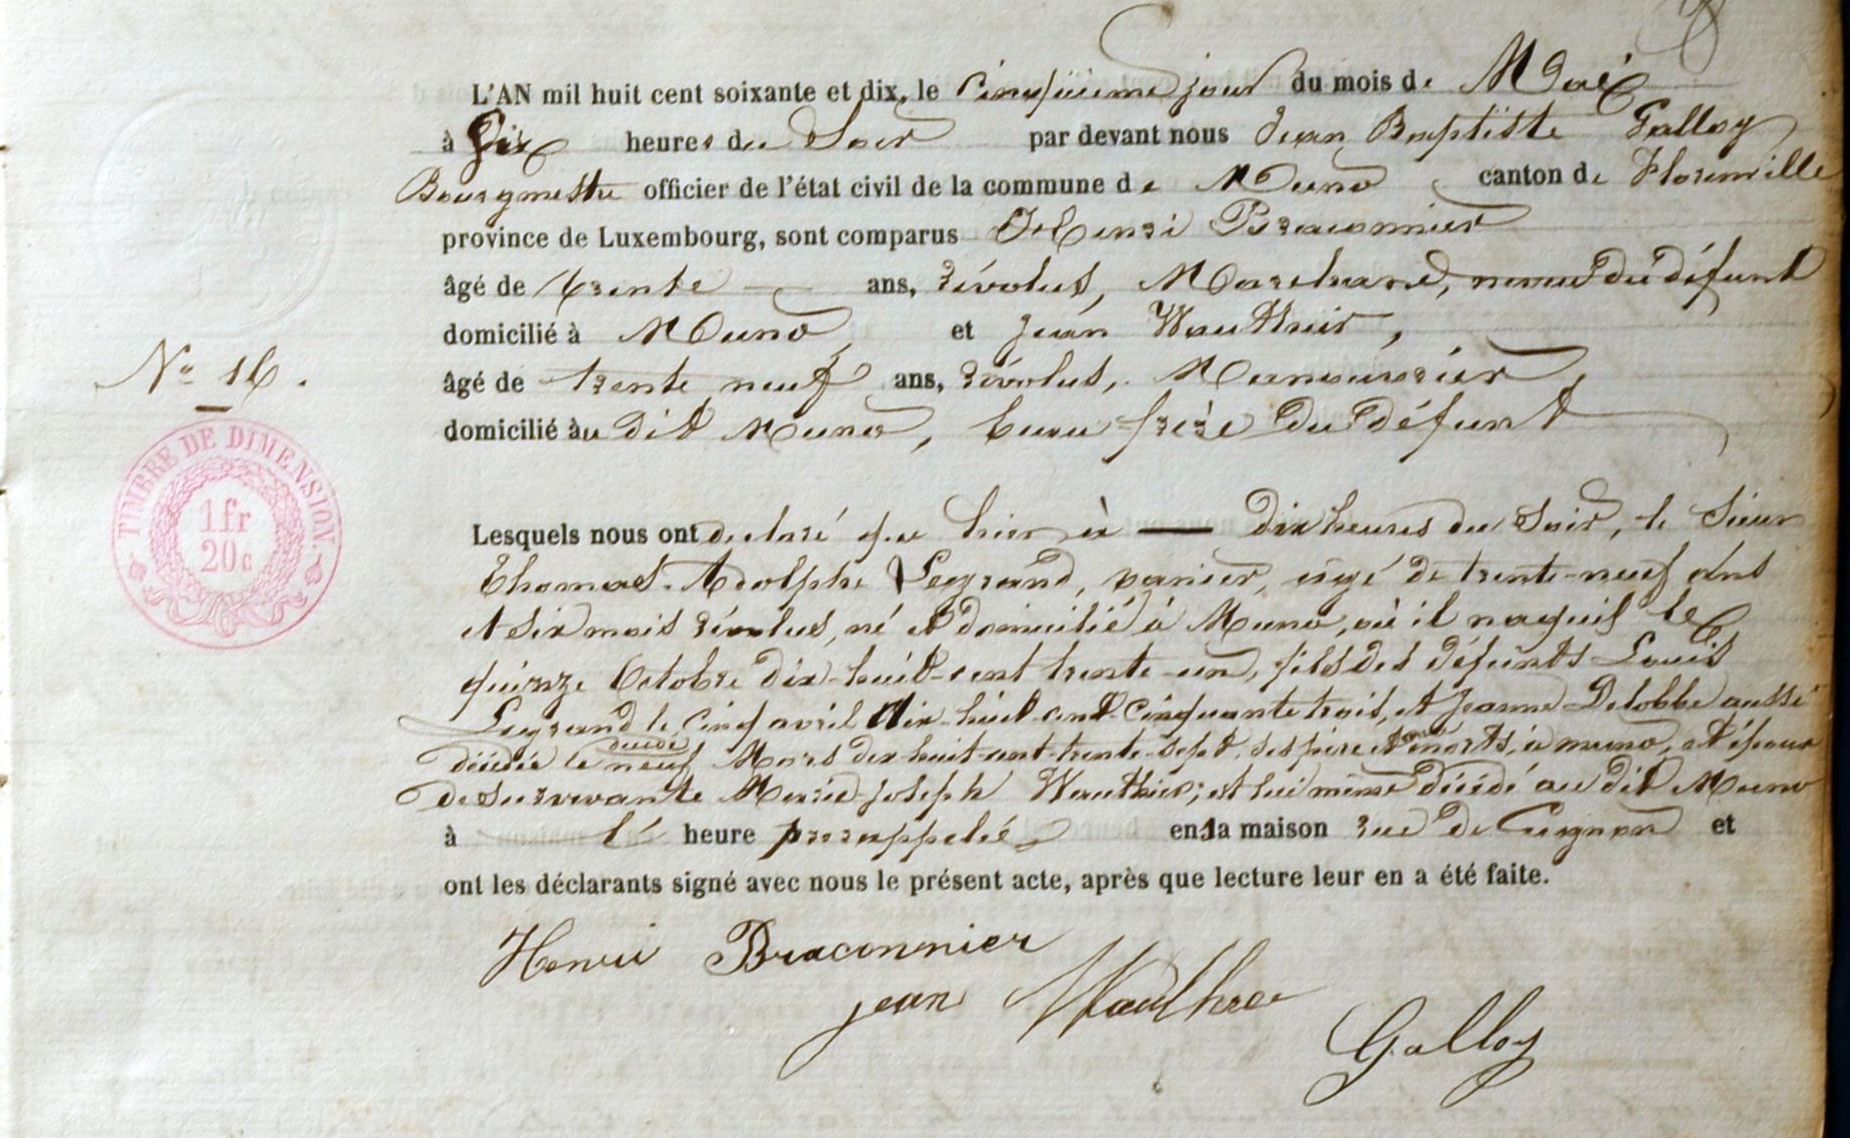 L'AN mil huit cent soixante et dix, le cinquième jour du mois de Mai
à Six heures du Soir par devant nous Jean Baptiste Galloy
Bourgmestre officier de l'état civil de la commune de Muno canton de Florenville
province de Luxembourg, sont comparus Henri Braconnier
âgé de trente ans, révolus, Marchand, neveu du défunt
domicilié à Muno, et Jean Wauthier,
N° 16.
âgé de trente neuf ans, révolus, Manouvrier,
domicilié au dit Muno, beau frère du défunt
TIMBRE DE DIMENSION.
1 fr
20 c
Lesquels nous ont declaré que hier à dix heures du Soir, le Sieur
Thomas-Adolphe Legrand, vanier, âgé de trente-neuf ans
et six mois révolus, né et domicilié à Muno, où il naquit le
quinze Octobre dix-huit-cent trente-un, fils des défunts Louis
Legrand le cinq avril dix-huit-cent-cinquante trois, et Jeanne Delobbe aussi
décédé
décédée le neuf Mars dix-huit-cent-trente-sept, ses père et morts, à muno, et époux
de survivante Marie-Joseph Wauthier; et lui même décédé au dit Muno
à l' heure prérappelée en la maison rue de Cugnon et
ont les déclarants signé avec nous le présent acte, après que lecture leur en a été faite.
Henri Braconnier
jean Wauthier
Galloy